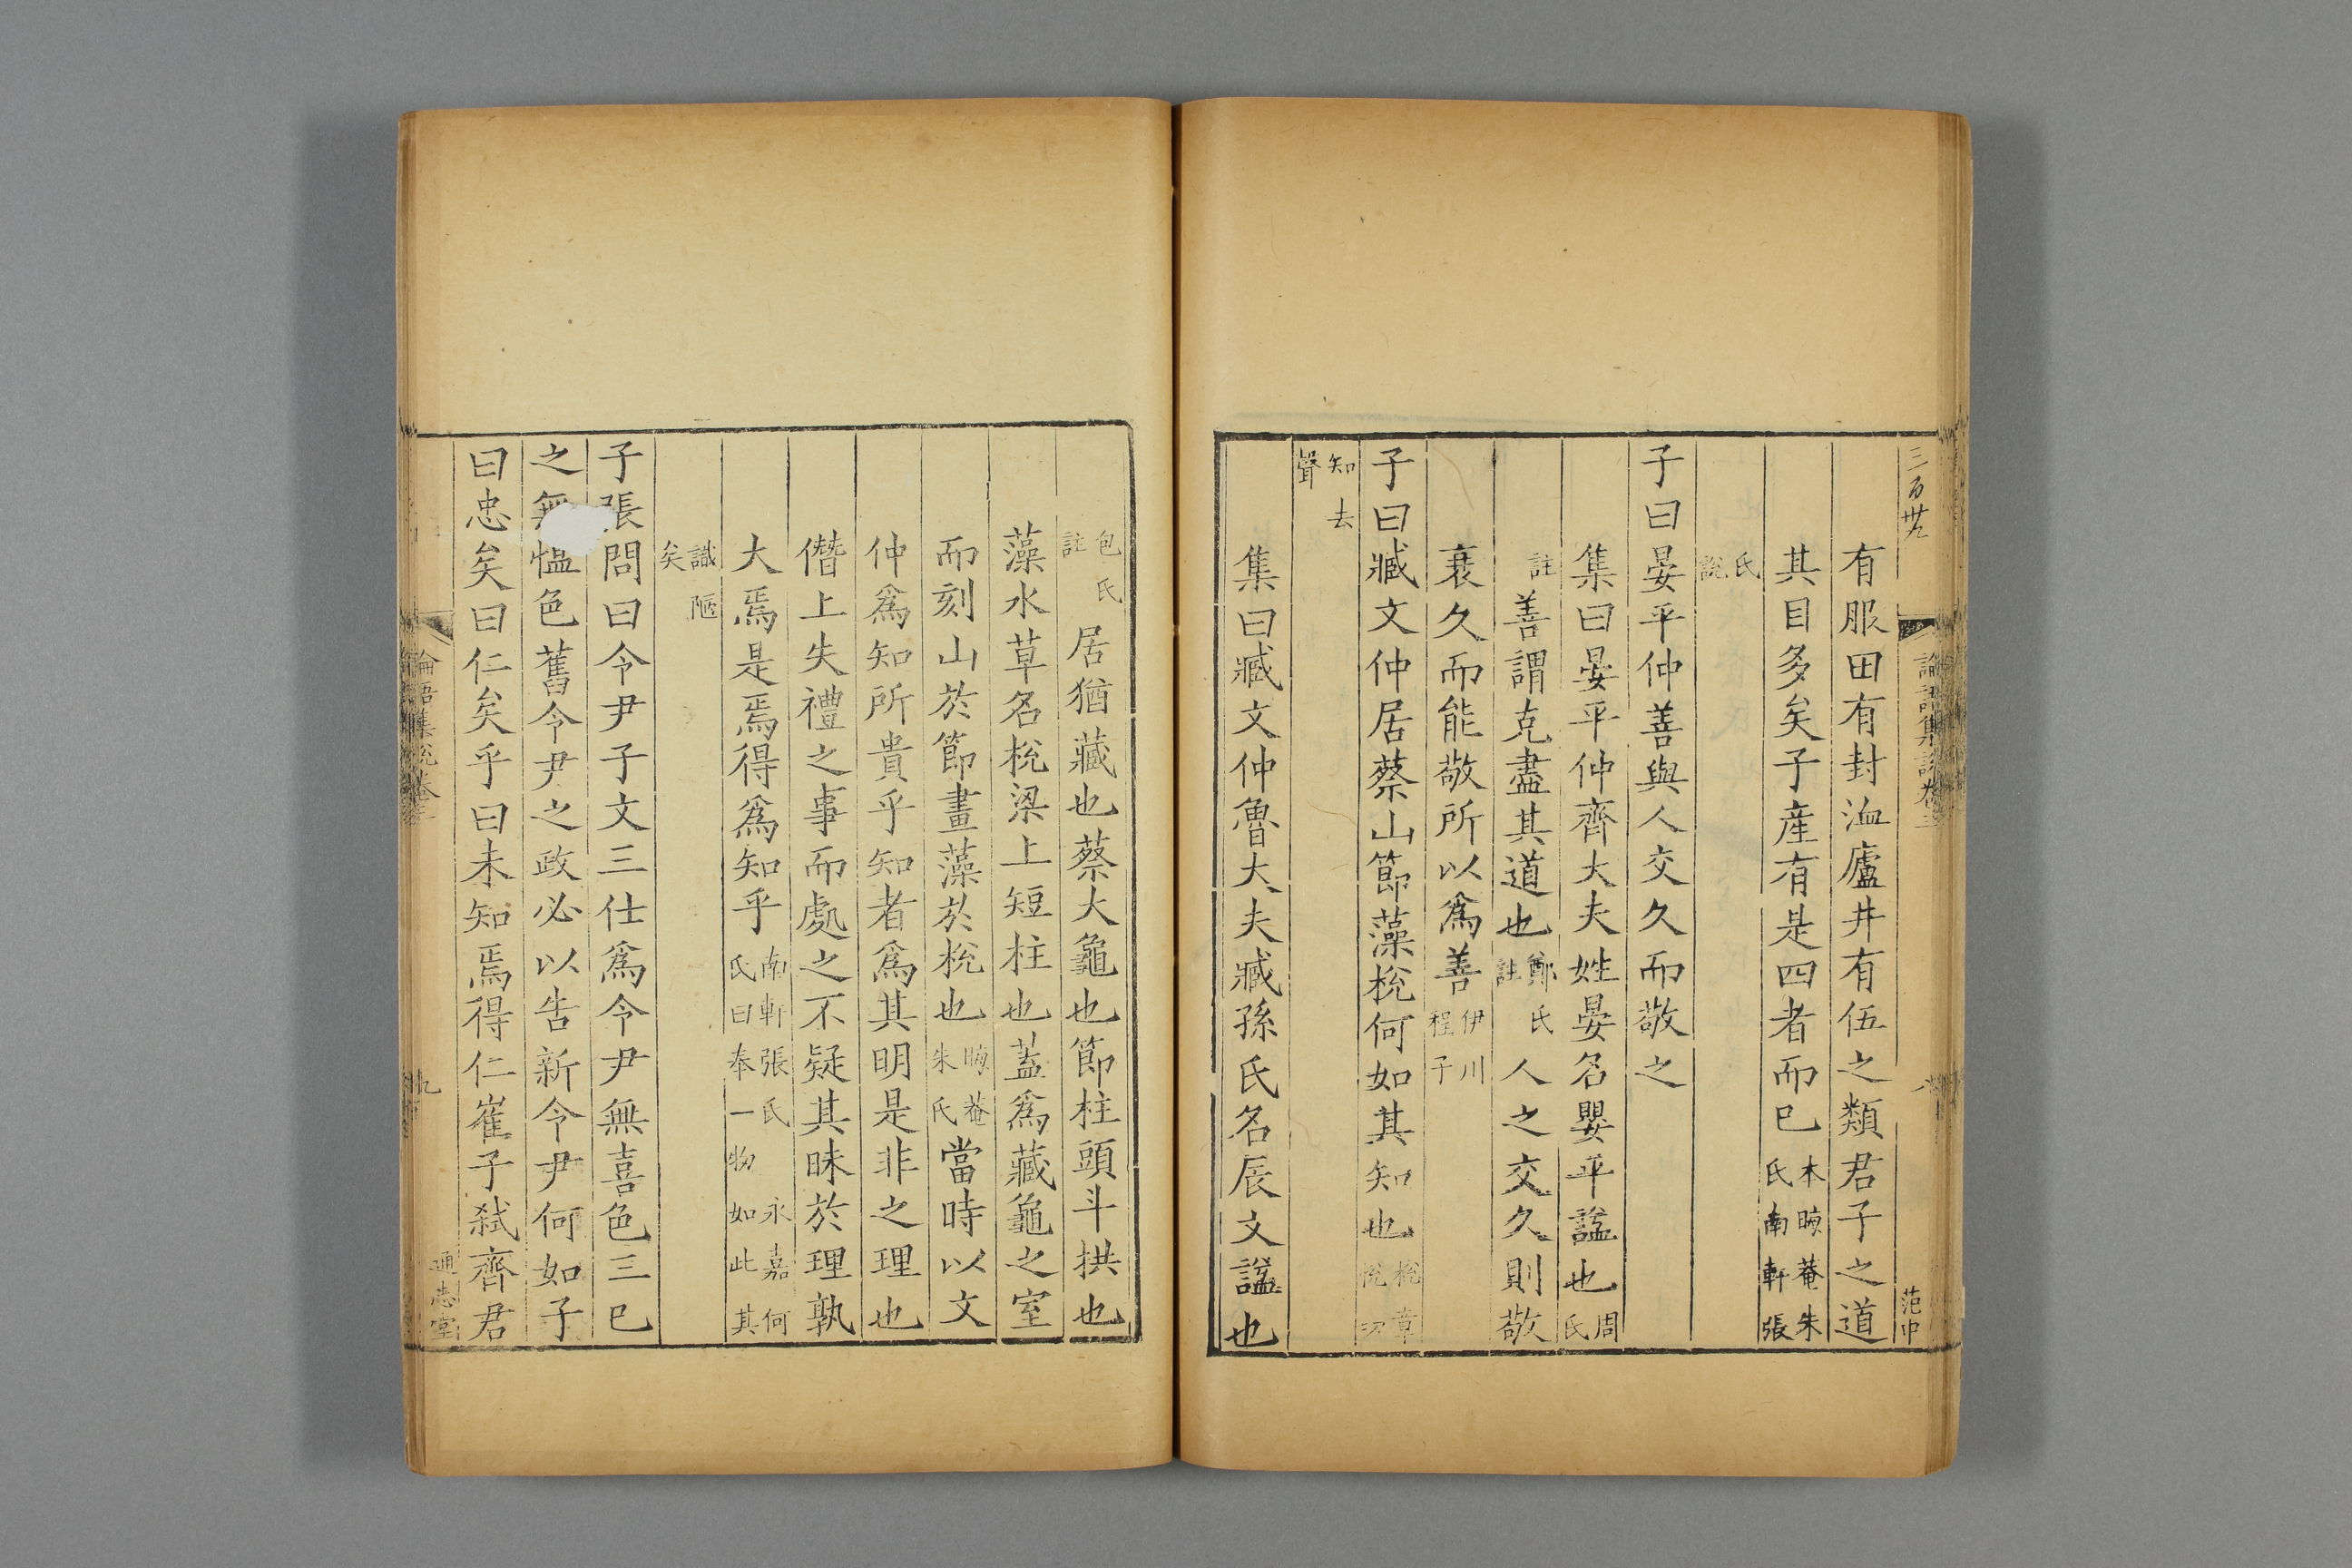 三百廿九
論語集說卷三
八
范中
有服田有封洫廬井有伍之類君子之道
其目多矣子產有是四者而已本晦菴朱氏南軒張
氏說
子曰晏平仲善與人交久而敬之
集曰晏平仲齊大夫姓晏名嬰平諡也周氏
註善謂克盡其道也鄭氏註人之交久則敬
衰久而能敬所以爲善伊川程子
子曰臧文仲居蔡山節藻梲何如其知也梲章悅切
知去聲
集曰臧文仲魯大夫臧孫氏名辰文諡也
包氏註居猶藏也蔡大龜也節柱頭斗拱也
藻水草名梲梁上短柱也蓋爲藏龜之室
而刻山於節畫藻於梲也晦菴朱氏當時以文
仲爲知所貴乎知者爲其明是非之理也
僭上失禮之事而處之不疑其昧於理孰
大焉是焉得爲知乎南軒張氏永嘉何氏曰奉一物如此其
識陋矣
子張問曰令尹子文三仕爲令尹無喜色三已
之無慍色舊令尹之政必以告新令尹何如子
曰忠矣曰仁矣乎曰未知焉得仁崔子弒齊君
論語集說卷三
九
通志堂